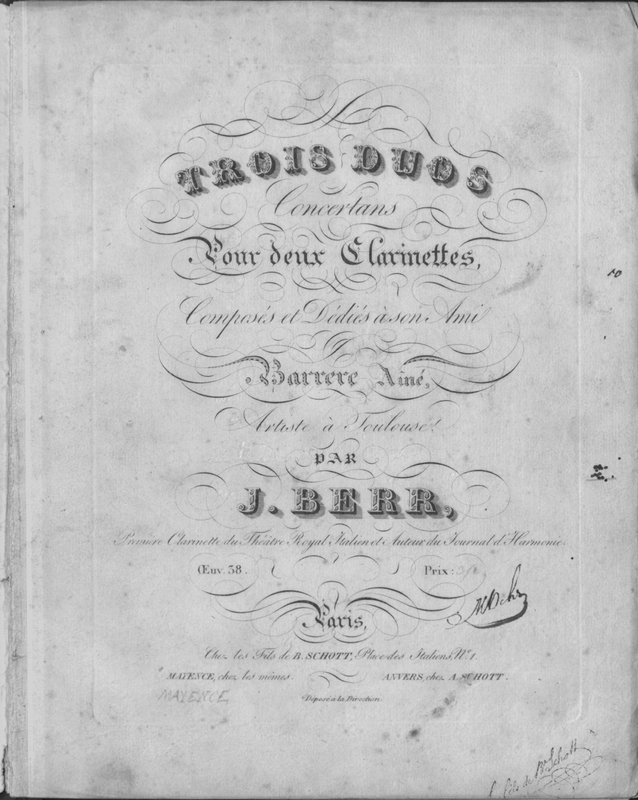 TROIS DUOS
Concertans
Pour deux Clarinettes,
Composés et Dédiés à son Ami
Barrere Ainé,
Artiste à Toulouse.
PAR
J. BERR,
Premiere Clarinette du Théâtre Royal Italien et Auteur du Journal d'Harmonie.
Œuv. 38. Prix:
Paris,
Chez les Fils de B. SCHOTT, Place des Italiens, N° 1.
MAYENCE, chez les mêmes. ANVERS, chez A. SCHOTT.
MAYENCE
Déposé à la Direction.
fils de B. Schott